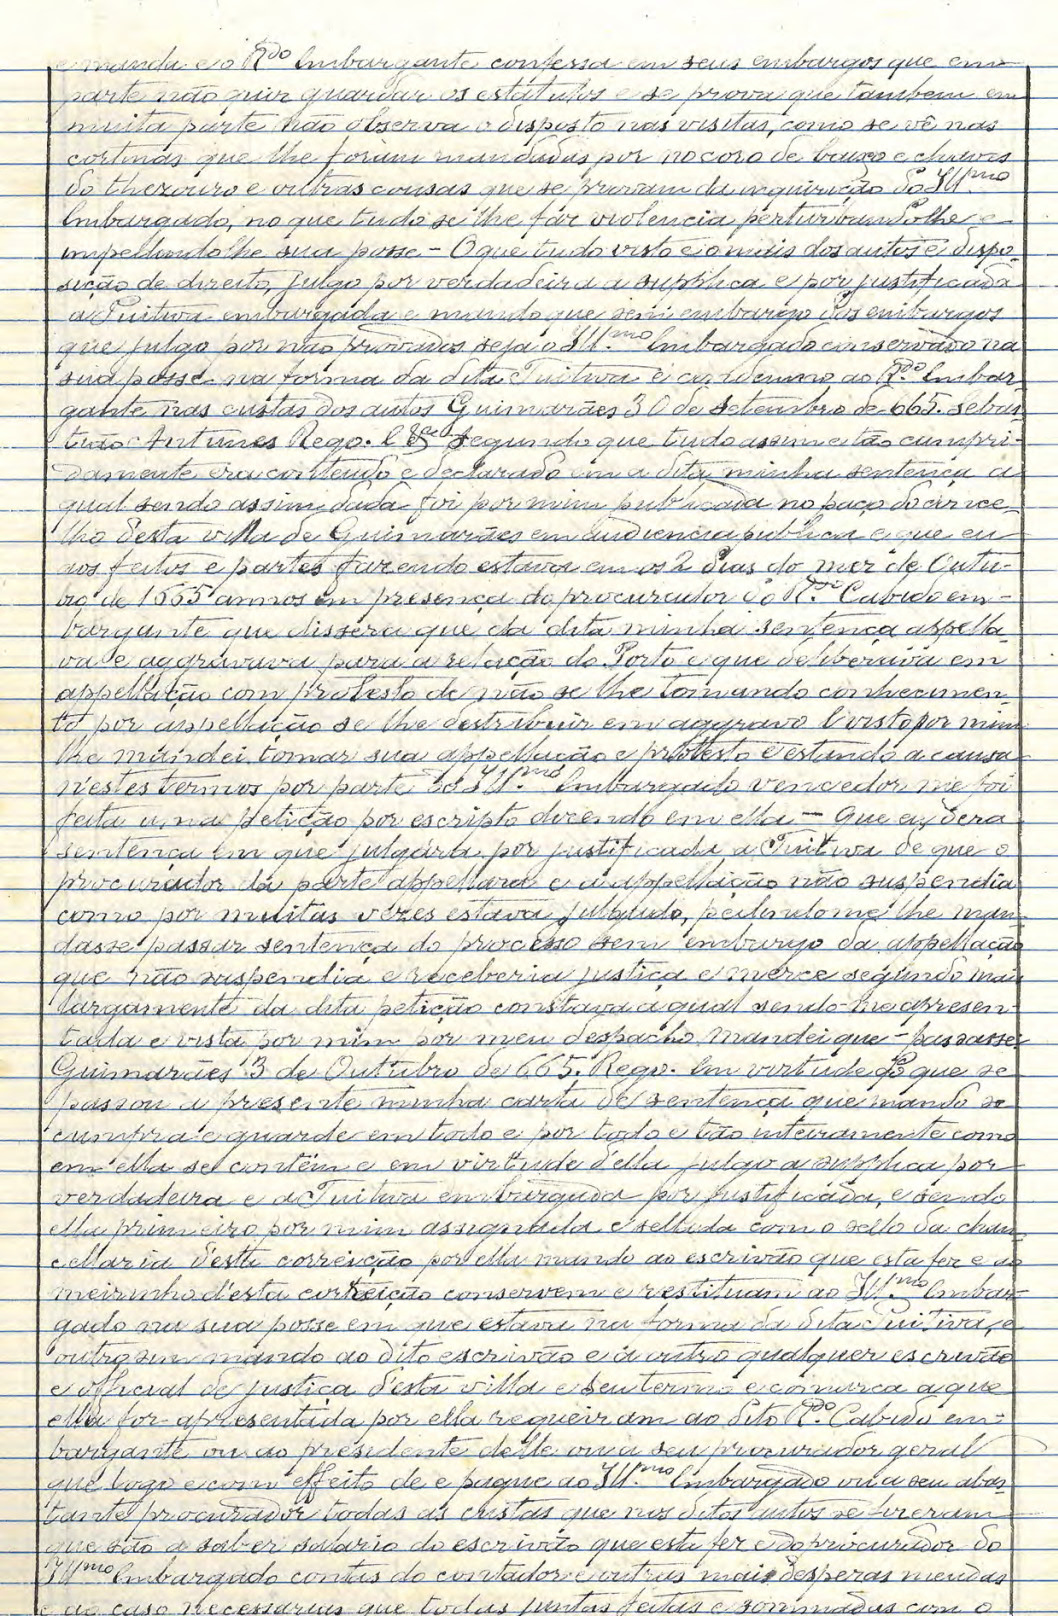 e manda e o R.do Embargante confessa em seus embargos que em
parte não quer guardar os estatutos e se prova que tambem em
muita parte não observa o disposto nas visitas, como se vê nas
cortinas que lhe foram mandadas por no coro de baixo e chaves
do thezouro e outras cousas que se provam da inquirição do Ill.mo
Embargado, no que tudo se lhe faz violencia perturbando lhe e
impedindo lhe sua posse - O que tudo visto e o mais dos autos e dispo-
sição de direito, julgo por verdadeira a supplica e por justificada
a Tuitiva embargada e mando que sem embargo dos embargos
que julgo por não provados seja o Ill.mo Embargado conservado na
sua posse na forma da dita Tuitiva e condemno ao R.do Embar-
gante nas custas dos autos Guimarães 30 de setembro de 665. Sebas-
tião Antunes Rego. E segundo que tudo assim e tão cumpri-
damente era conteudo e declarado em a dita minha sentença a
qual sendo assim dada foi por mim publicada no paço do conce-
lho d'esta villa de Guimarães em audiencia publica e que eu
aos feitos e partes fazendo estava em os 2 dias do mez de Outu-
bro de 1665 annos em presença do procurador do R.do Cabido em-
bargante que dissera que da dita minha sentença appella-
va e aggravava para a relação do Porto e que deliberava em
appellação com protesto de não se lhe tomando conhecimen-
to por appellação se lhe destribuir em aggravo E visto por mim
lhe mandei tomar sua appellação e protesto E estando a causa
n'estes termos por parte do Ill.mo Embargado vencedor me foi
feita uma petição por escripto dizendo em ella - Que eu dera
sentença em que julgára por justificada a Tuitiva de que o
procurador da parte appellara e a appellação não suspendia
como por muitas vezes estava julgado, pedindo me lhe man-
dasse passar sentença do processo sem embargo da appellação
que não suspendia e receberia justiça e merce segundo mais
largamente da dita petição constava a qual sendo-me apresen-
tada e vista por mim por meu despacho mandei que - passasse.
Guimarães 3 de Outubro de 665. Rego. Em virtude do que se
passou a presente minha carta de sentença que mando se
cumpra e guarde em todo e por todo e tão inteiramente como
em ella se contém e em virtude d'ella julgo a supplica por
verdadeira e a Tuitiva embargada por justificada, e sendo
ella primeiro por mim assignada e sellada com o sello da chan-
cellaria d'esta correição por ella mando ao escrivão que esta fez e ao
meirinho d'esta correição conservem e restituam ao Ill.mo Embar-
gado na sua posse em que estava na forma da dita Tuitiva, e
outrosim mando ao dito escrivão e a outro qualquer escrivão
e official de justiça d'esta villa e seu termo e comarca a que
ella for apresentada por ella requeiram ao dito R.do Cabido em-
bargante ou ao presidente delle ou a seu procurador geral
que logo e com effeito de e pague ao Ill.mo Embargado ou a seu abas-
tante procurador todas as custas que nos ditos autos se fizeram
que são a saber salario do escrivão que esta fez e do procurador do
Ill.mo Embargado contas do contador e outras mais despezas meudas
e ao caso necessarias que todas juntas feitas e sommadas com o